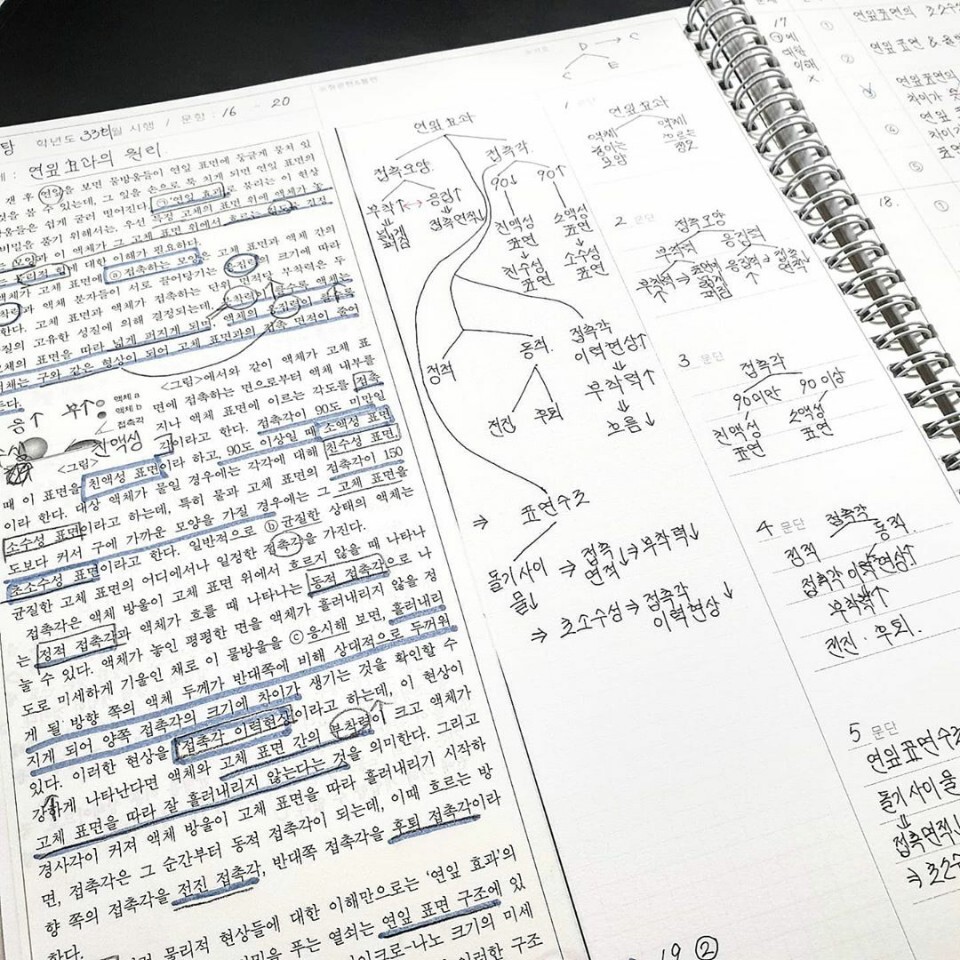 학년도 33번 시행 / 문항 : 16 - 20
연잎 효과의 원리
갠 후 연잎을 보면 물방울들이 연잎 표면에 둥글게 뭉쳐 있
것을 볼 수 있는데, 그 잎을 손으로 툭 치게 되면 연잎 표면의
방울들은 쉽게 굴러 떨어진다. ㉠'연잎 효과'로 불리는 이 현상
비밀을 풀기 위해서는, 우선
특정 고체의 표면 위에 액체가 놓
모양과 이 액체가 그 고체 표면 위에서 흐르는
물리적 힘에 대한 이해가 필요하다.
액체가 고체 표면에 ⓐ접촉하는 모양은 고체 표면과 액체 간의
액체 분자들이 서로 끌어당기는 응집력의 크기에 따라
한다. 고체 표면과 액체가 접촉하는 단위 면적당 부착력은 두
질의 고유한 성질에 의해 결정되는데, 부착력이 클수록 액체는
고체의 표면을 따라 넓게 퍼지게 되며, 액체의 응집력이 클수록
액체는 구와 같은 형상이 되어 고체 표면과의 접촉 면적이 줄어
든다.
응↑ 부↑
액체 a
액체 b
접촉각
친액성
<그림>
<그림>에서와 같이 액체가 고체 표
면에 접촉하는 면으로부터 액체 내부를
지나 액체 표면에 이르는 각도를 접촉
각이라고 한다. 접촉각이 90도 미만일
때 이 표면을 친액성 표면이라 하고, 90도 이상일 때 소액성 표면
이라 한다. 대상 액체가 물일 경우에는 각각에 대해 친수성 표면,
소수성 표면이라고 하는데, 특히 물과 고체 표면의 접촉각이 150
도보다 커서 구에 가까운 모양을 가질 경우에는 그 고체 표면을
초소수성 표면이라고 한다. 일반적으로 ⓑ균질한 상태의 액체는
균질한 고체 표면의 어디에서나 일정한 접촉각을 가진다.
접촉각은 액체 방울이 고체 표면 위에서 흐르지 않을 때 나타나
는 정적 접촉각과 액체가 흐를 때 나타나는 동적 접촉각으로 나
눌 수 있다. 액체가 놓인 평평한 면을 액체가 흘러내리지 않을 정
도로 미세하게 기울인 채로 이 물방울을 ⓒ응시해 보면, 흘러내리
게 될 방향 쪽의 액체 두께가 반대쪽에 비해 상대적으로 두꺼워
지게 되어 양쪽 접촉각의 크기에 차이가 생기는 것을 확인할 수
있다. 이러한 현상을 접촉각 이력현상이라고 하는데, 이 현상이
강하게 나타난다면 액체와 고체 표면 간의 부착력이 크고 액체가
고체 표면을 따라 잘 흘러내리지 않는다는 것을 의미한다. 그리고
경사각이 커져 액체 방울이 고체 표면을 따라 흘러내리기 시작하
면, 접촉각은 그 순간부터 동적 접촉각이 되는데, 이때 흐르는 방
향 쪽의 접촉각을 전진 접촉각, 반대쪽 접촉각을 후퇴 접촉각이라
한다.
물리적 현상들에 대한 이해만으로는 '연잎 효과'의
푸는 열쇠는 연잎 표면 구조에 있
마이크로-나노 크기의 미세
이러한 구조
연잎 효과
접촉모양 접촉각
부착↑ ↔ 응집↑
넓게 퍼짐
접촉면적↓
90↓ 90↑
친액성 표면
소액성 표면
친수성 표면
소수성 표면
정적 동적
접촉각 이력현상↑
전진 후퇴
부착력↑
흐름↓
⇒ 표면수조
돌기 사이 물↓
⇒ 접촉 면적↓ ⇒ 부착력↓
⇒ 초소수성 ⇒ 접촉각 이력현상↓
D → C
C E
1 문단
연잎효과
액체
액체
모양
2 문단
접촉모양
부착력 응집력
부착력↑ ⇒ 표면
응집력↑ ⇒ 접촉 면적↓
3 문단
접촉각
90미만 90 이상
친액성 표면
소액성 표면
4 문단
접촉각
정적 동적
접촉각 이력현상↑
부착력↑
전진 · 후퇴.
5 문단
연잎표면수조
돌기 사이 물
⇓
접촉면적↓
⇒ 초소수
19 ②
17
①
연잎표면의 초소수성
②
연잎 표면 &
연잎표면의
④
연잎
⑤
18.
①